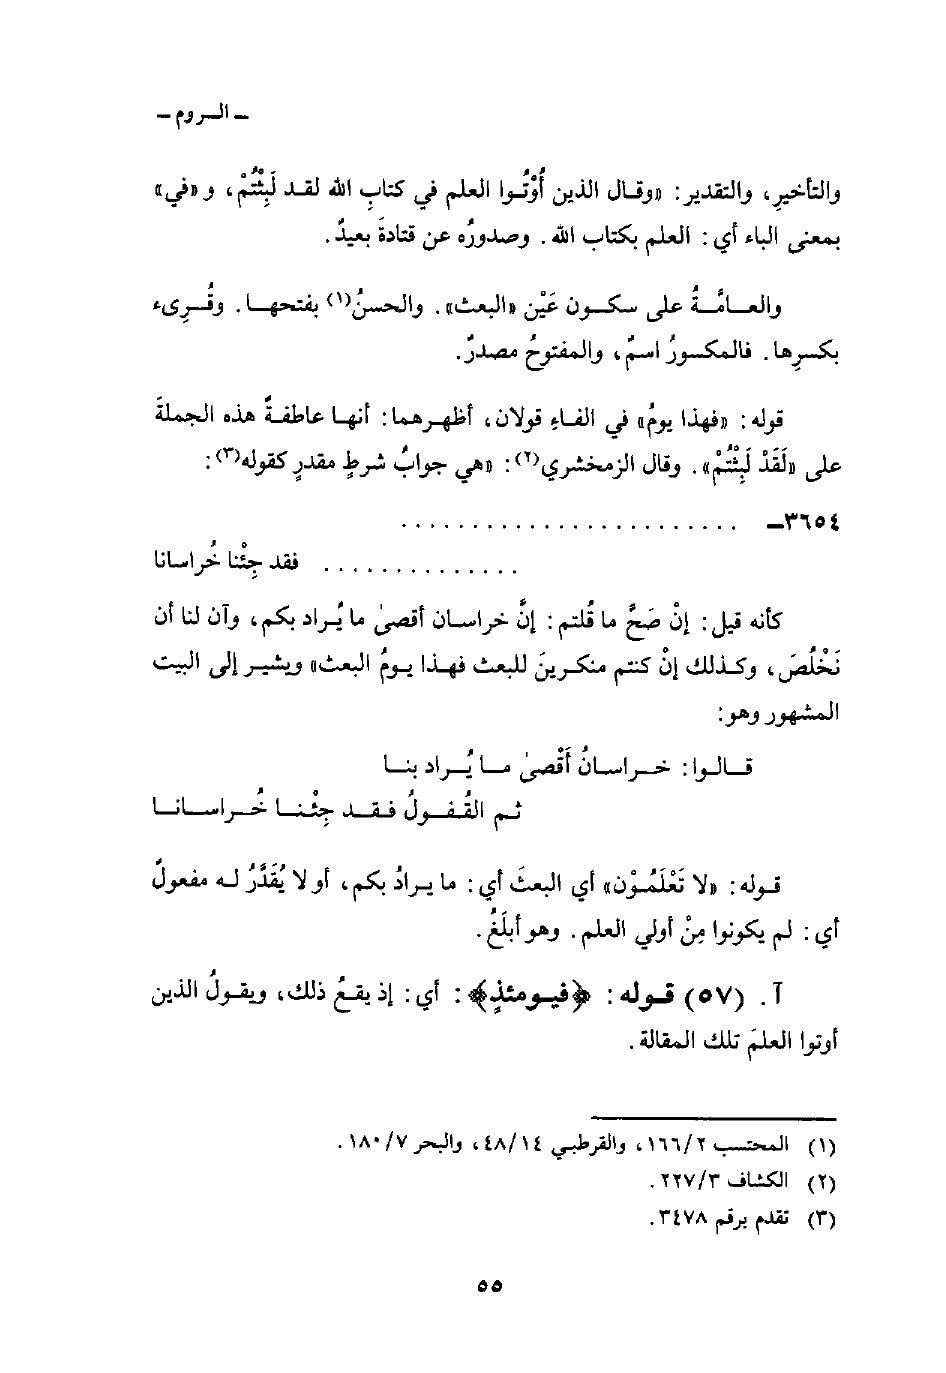 ـ الـروم ـ
والتأخيرِ، والتقدير: «وقـال الذين أُوْتُـوا العلم في كتابِ الله لقـد لَبِثْتُمْ، و «في»
بمعنى الباء أي: العلم بكتاب الله. وصدورُه عن قتادةَ بعيدٌ.
والعـامَّـةُ على سكـون عَيْن «البعث». والحسنُ(١) بفتحهـا. وقُـرِىء
بكسرِها. فالمكسورُ اسمٌ، والمفتوحُ مصدرٌ.
قوله: «فهذا يومُ» في الفـاءِ قولان، أظهـرهمـا: أنهـا عاطفـةٌ هذه الجملةَ
على «لَقَدْ لَبِثْتُمْ». وقال الزمخشري(٢): «هي جوابُ شرطٍ مقدرٍ كقوله(٣):
٣٦٥٤ـ ........................
.............. فقد جِئْنا خُراسانا
كأنه قيل: إنْ صَحَّ ما قُلتم: إنَّ خراسـان أقصىٰ ما يُـراد بكم، وآن لنا أن
نَخْلُصَ، وكـذلك إنْ كنتم منكـرينَ للبعث فهـذا يـومُ البعث» ويشيـر إلى البيت
المشهور وهو:
قـالـوا: خـراسـانُ أَقْصىٰ مـا يُـراد بنـا
ثـم القُـفـولُ فـقـد جِئْـنـا خُـراسـانـا
قـوله: «لا تَعْلَمُـوْن» أي البعثَ أي: ما يـرادُ بكم، أو لا يُقَدَّرُ لـه مفعولٌ
أي: لم يكونوا مِنْ أولي العلم. وهو أبلَغُ.
آ. (٥٧) قـوله: ﴿فيـومئذٍ﴾: أي: إذ يقـعُ ذلك، ويقـولُ الذين
أوتوا العلمَ تلك المقالة.
(١) المحتسب ١٦٦/٢، والقرطبي ٤٨/١٤، والبحر ١٨٠/٧.
(٢) الكشاف ٢٢٧/٣.
(٣) تقدم برقم ٣٤٧٨.
٥٥